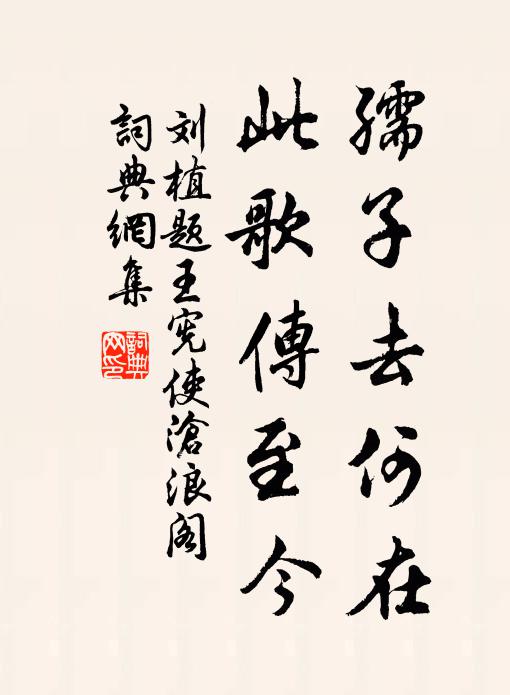 孺子去何在
此歌傳至今
刘植题王宪使滄浪阁
詞典網集
詞典网印